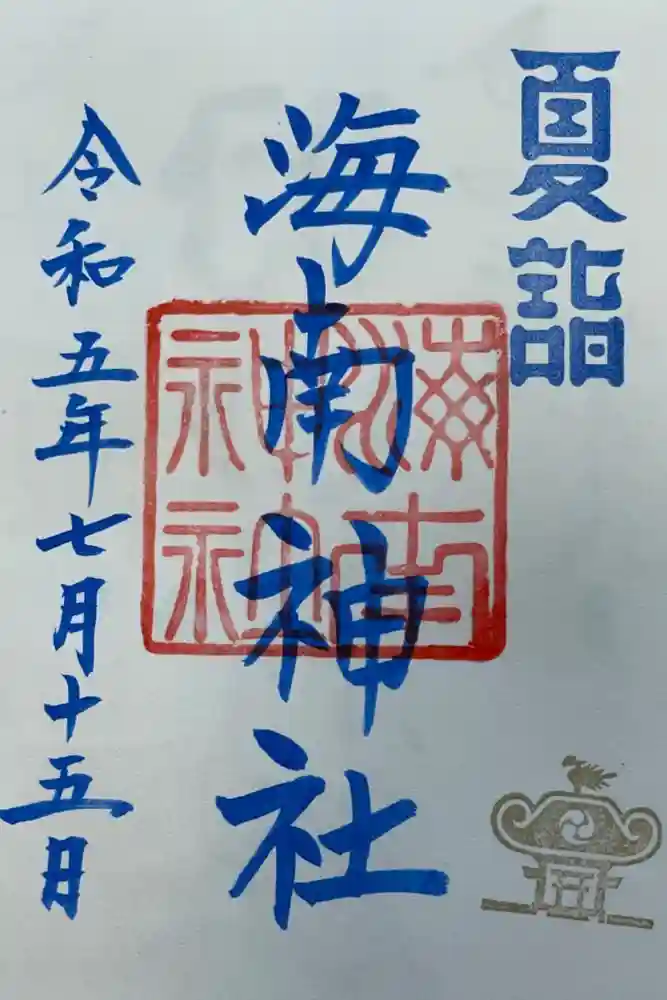 夏詣
海南神社
海南神社
令和五年七月十五日